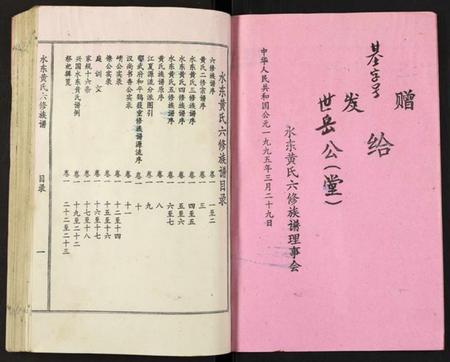 赠给
基字号
发
世岳公(堂)
水东黄氏六修族谱理事会
中华人民共和国公元一九九五年三月二十九日
水东黄氏六修族谱目录
六修族谱序 卷一 一至二
黄氏二修宗谱序 卷一 三
水东黄氏三修族谱序 卷一 四
水东黄氏四修族谱序 卷一 五至六
水东黄氏五修族谱序 卷一 六至七
黄氏族谱原序 卷一 八
江夏源流分派图引 卷一 九
鄂武府和平鹤薮重修族谱源流序 卷一 十
汉尚书香公实录 卷一 十一
峭公实录 卷一 十二至十四
僚公实录 卷一 十五至十六
庭训文 卷一 十六至十七
家规十六条 卷一 十七至十八
兴国水东黄氏谱例 卷一 十九至二十二
祭祀撰览 卷一 二十二至二十三
水东黄氏六修族谱 目录 一